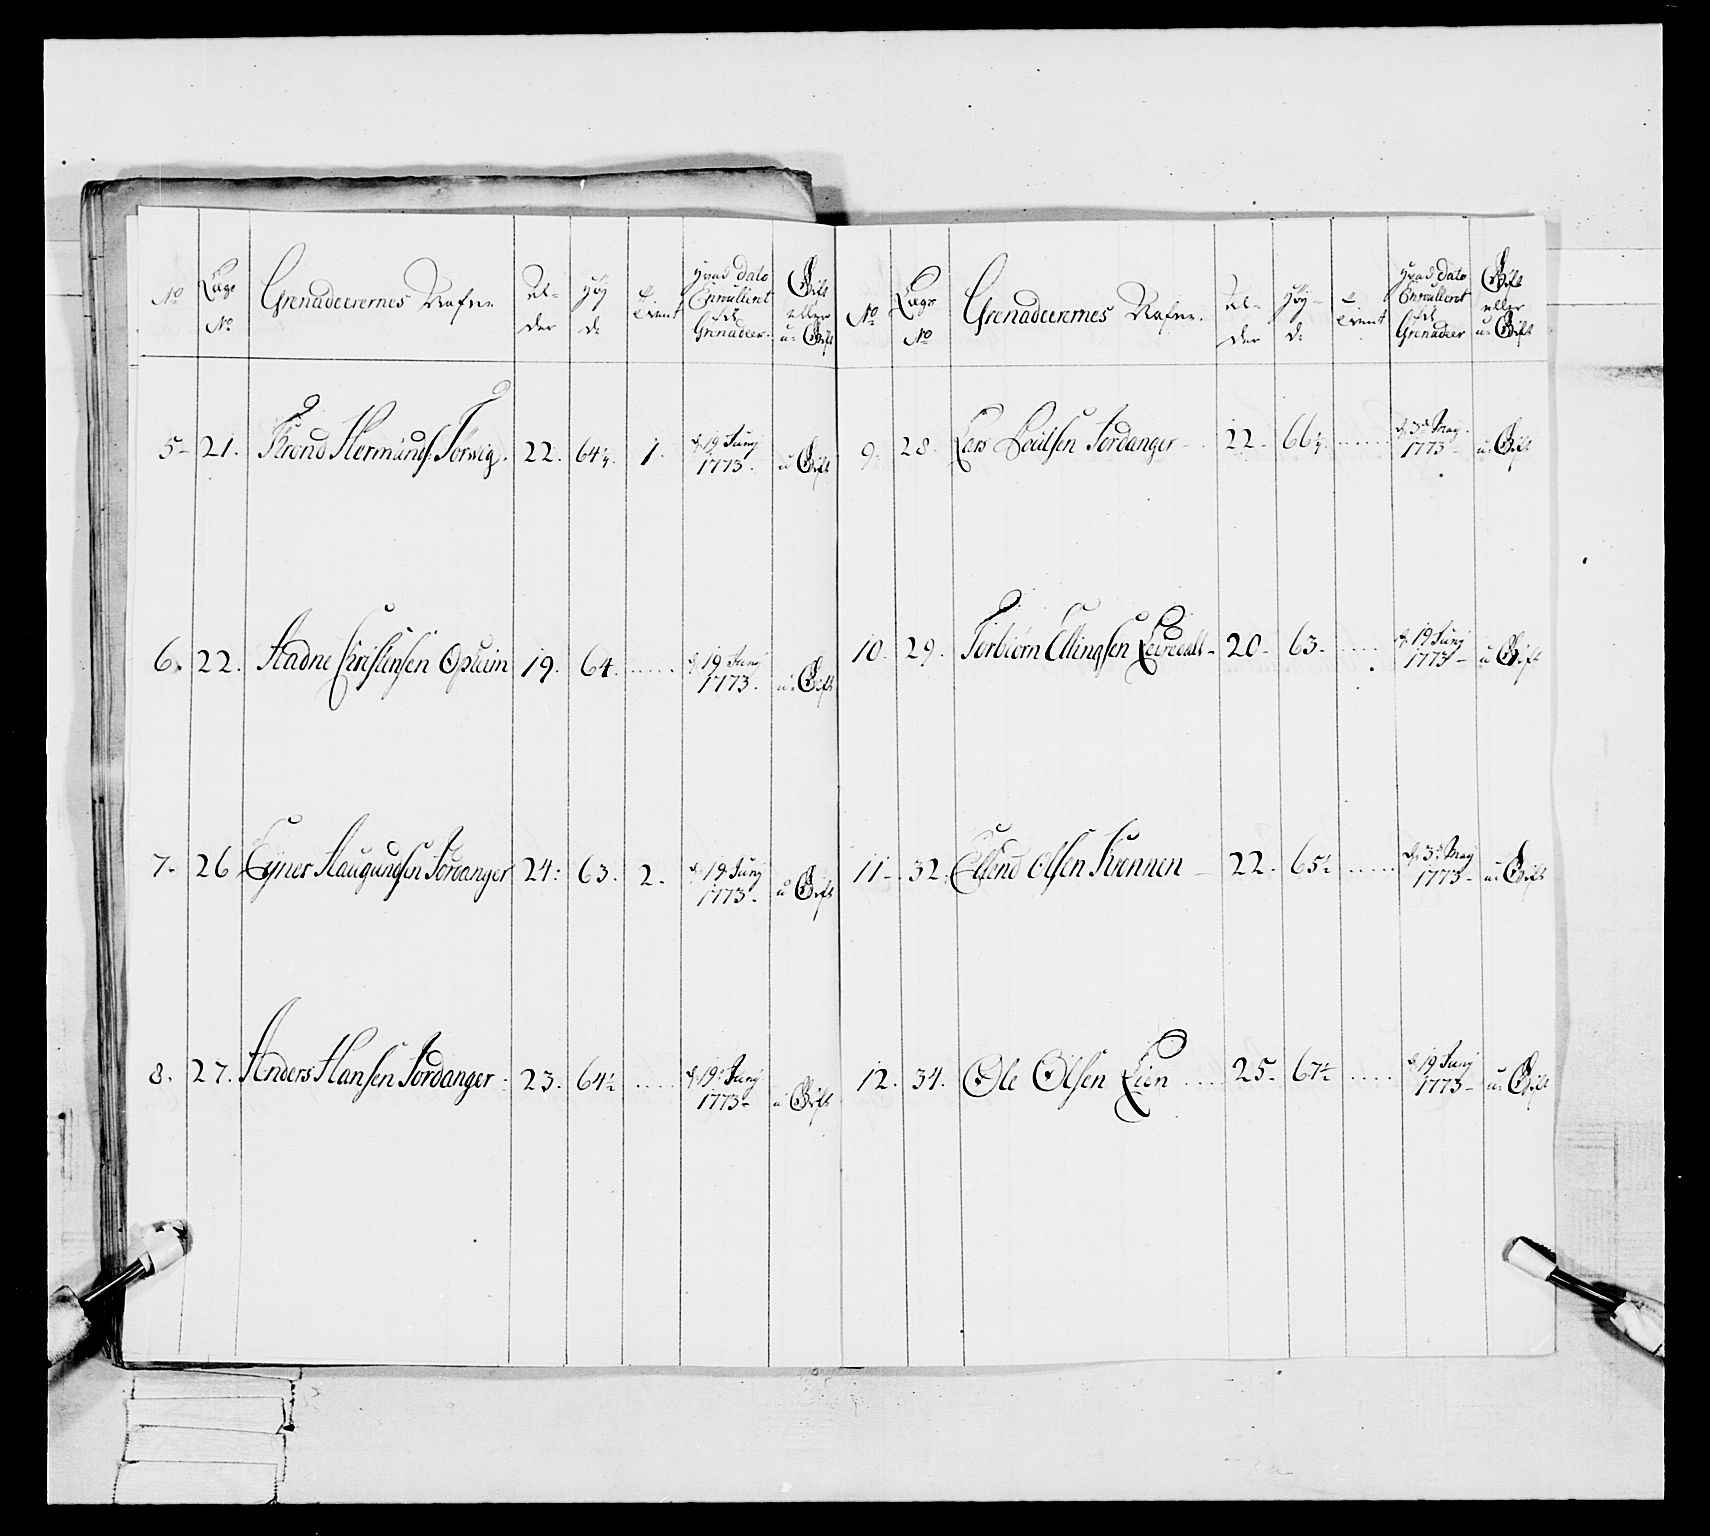 No
Lægs No
Grenadeerernes Nafne
Al-der
Høy d:
Tient
Hvad Dato Enrullent til Grenadeer.
Gift eller u: Gift
5- 21. Trond Hermunds: Torvig. 22. 64¼. 1. d. 19 Junij 1773. u Gift
6. 22. Aadne Christensen Opheim 19. 64. ...... d. 19 Junij 1773. u: Gift
7- 26 Ejner Haugundsen Jordanger 24: 63. 2. d. 19. Junij 1773. u Gift
8. 27. Anders Hansen Jordanger - 23. 64½ ..... d. 19: Junij 1773- u Gift
No
Lægs No
Grenadeerernes Nafne.
Al-der
Høy- d:
Tient
Hvad Dato Enrullent til Grenadeer
Gift eller u: Gift
9. 28. Lars Poulsen Jordanger - 22- 66¼. ...... d. 3d. May. 1773- u: Gift
10. 29. Torbiørn Ellingsen Leiredalt- 20- 63- ..... d. 19 Junij 1773- u Gift
11-. 32. Ellend Olsen Kvennen - 22- 65½ ...... d. 3d. Maij 1773- u: Gift
12. 34. Ole Olsen Lien .... 25- 67½ ..... d. 19 Junij 1773- u: Gift